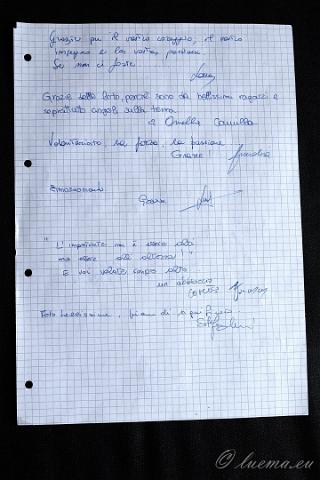 Grazie per il vostro coraggio, il vostro
impegno e la vostra passione.
Se non ci foste
Grazie delle foto, perché sono dei bellissimi ragazzi e
soprattutto angeli sulla terra
Ornella Camilla
Volontariato, la forza, la passione
Grazie
Emozionante
Grazie
"L'importante non è essere alti
ma essere all'altezza!"
E voi volate alto
un abbraccio
Foto bellissime, piene di
© luema.eu